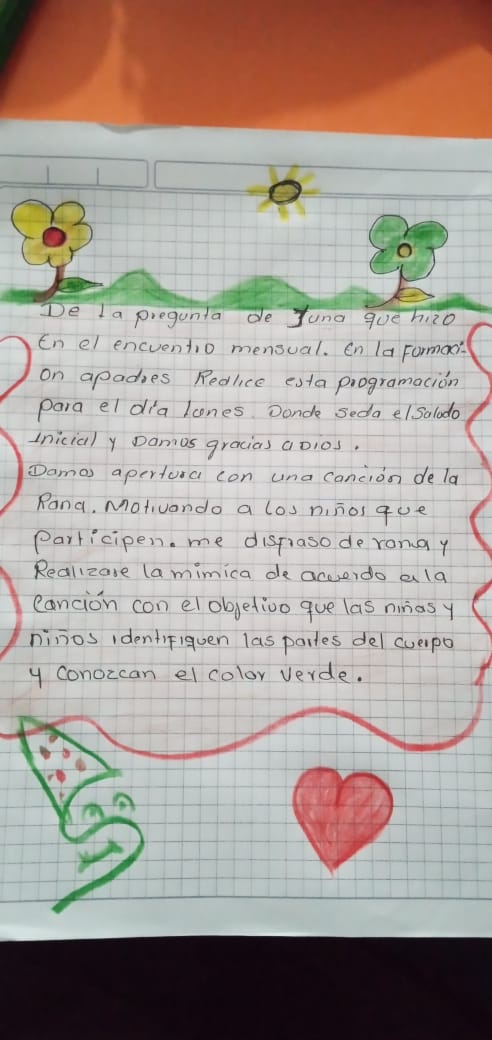 De la pregunta de Juna que hizo
En el encuentro mensual. En la Formaci-
on apadres Realice esta programación
para el dia lones Donde seda el Salodo
Inicial y Damos gracias a DIOS.
Damos apertura con una canción de la
Rana. Motivando a los niños que
participen. me disfraso de rana y
Realizare la mimica de acuerdo a la
Canción con el objetivo que las niñas y
niños identifiquen las partes del cuerpo
y conozcan el color verde.